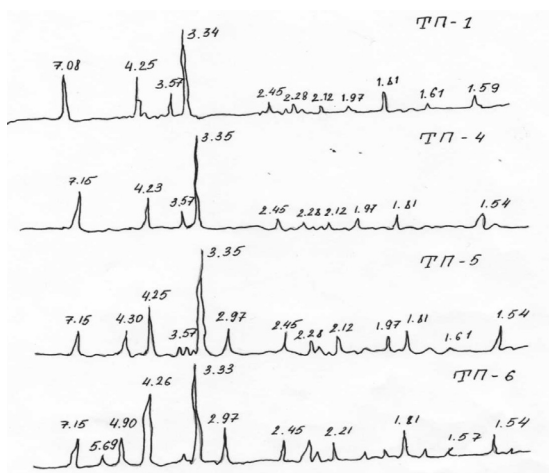 ТП-1
7.08 4.25 3.57 3.34 2.45 2.28 2.12 1.97 1.81 1.61 1.59
ТП-4
7.15 4.23 3.57 3.35 2.45 2.28 2.12 1.97 1.81 1.54
ТП-5
7.15 4.30 4.25 3.57 3.35 2.97 2.45 2.28 2.12 1.97 1.81 1.61 1.54
ТП-6
7.15 5.69 4.90 4.26 3.33 2.97 2.45 2.21 1.81 1.57 1.54